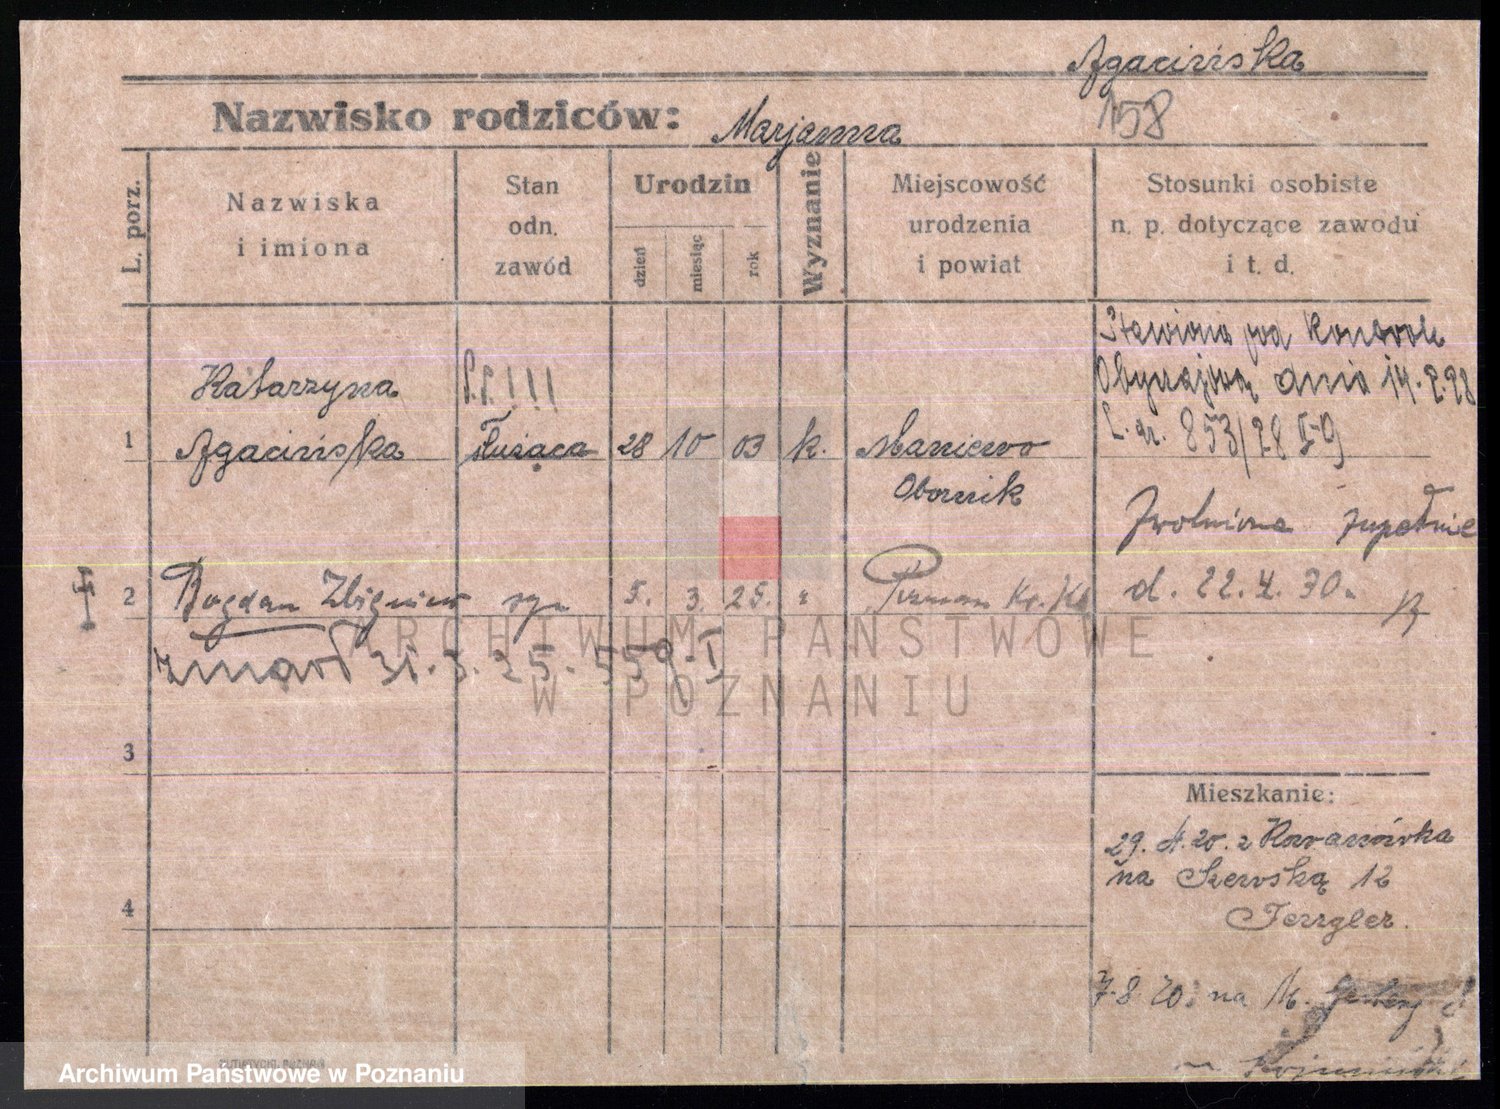 Agacińska
Nazwisko rodziców: Marjanna
158
L. porz.
Nazwiska
i imiona
Stan
odn.
zawód
Urodzin
dzień
miesiąc
rok
Wyznanie
Miejscowość
urodzenia
i powiat
Stosunki osobiste
n. p. dotyczące zawodu
i t. d.
Katarzyna
1 Agacińska służąca 28 10 03 k. Maniewo
Obornik
Stawiona pod Kontrolę
Obyczajową dnia 14.2.28
L. dz. 853/28
Zwolniona zupełnie
d. 22.4.30.
2 Bogdan Zbigniew syn 5. 3. 25. "
zmarł 31.3.25. 559.I
ARCHIWUM PAŃSTWOWE
W POZNANIU
3
4
Mieszkanie:
29.4.20. z
na Szewską 12
7.8.20. na
Archiwum Państwowe w Poznaniu